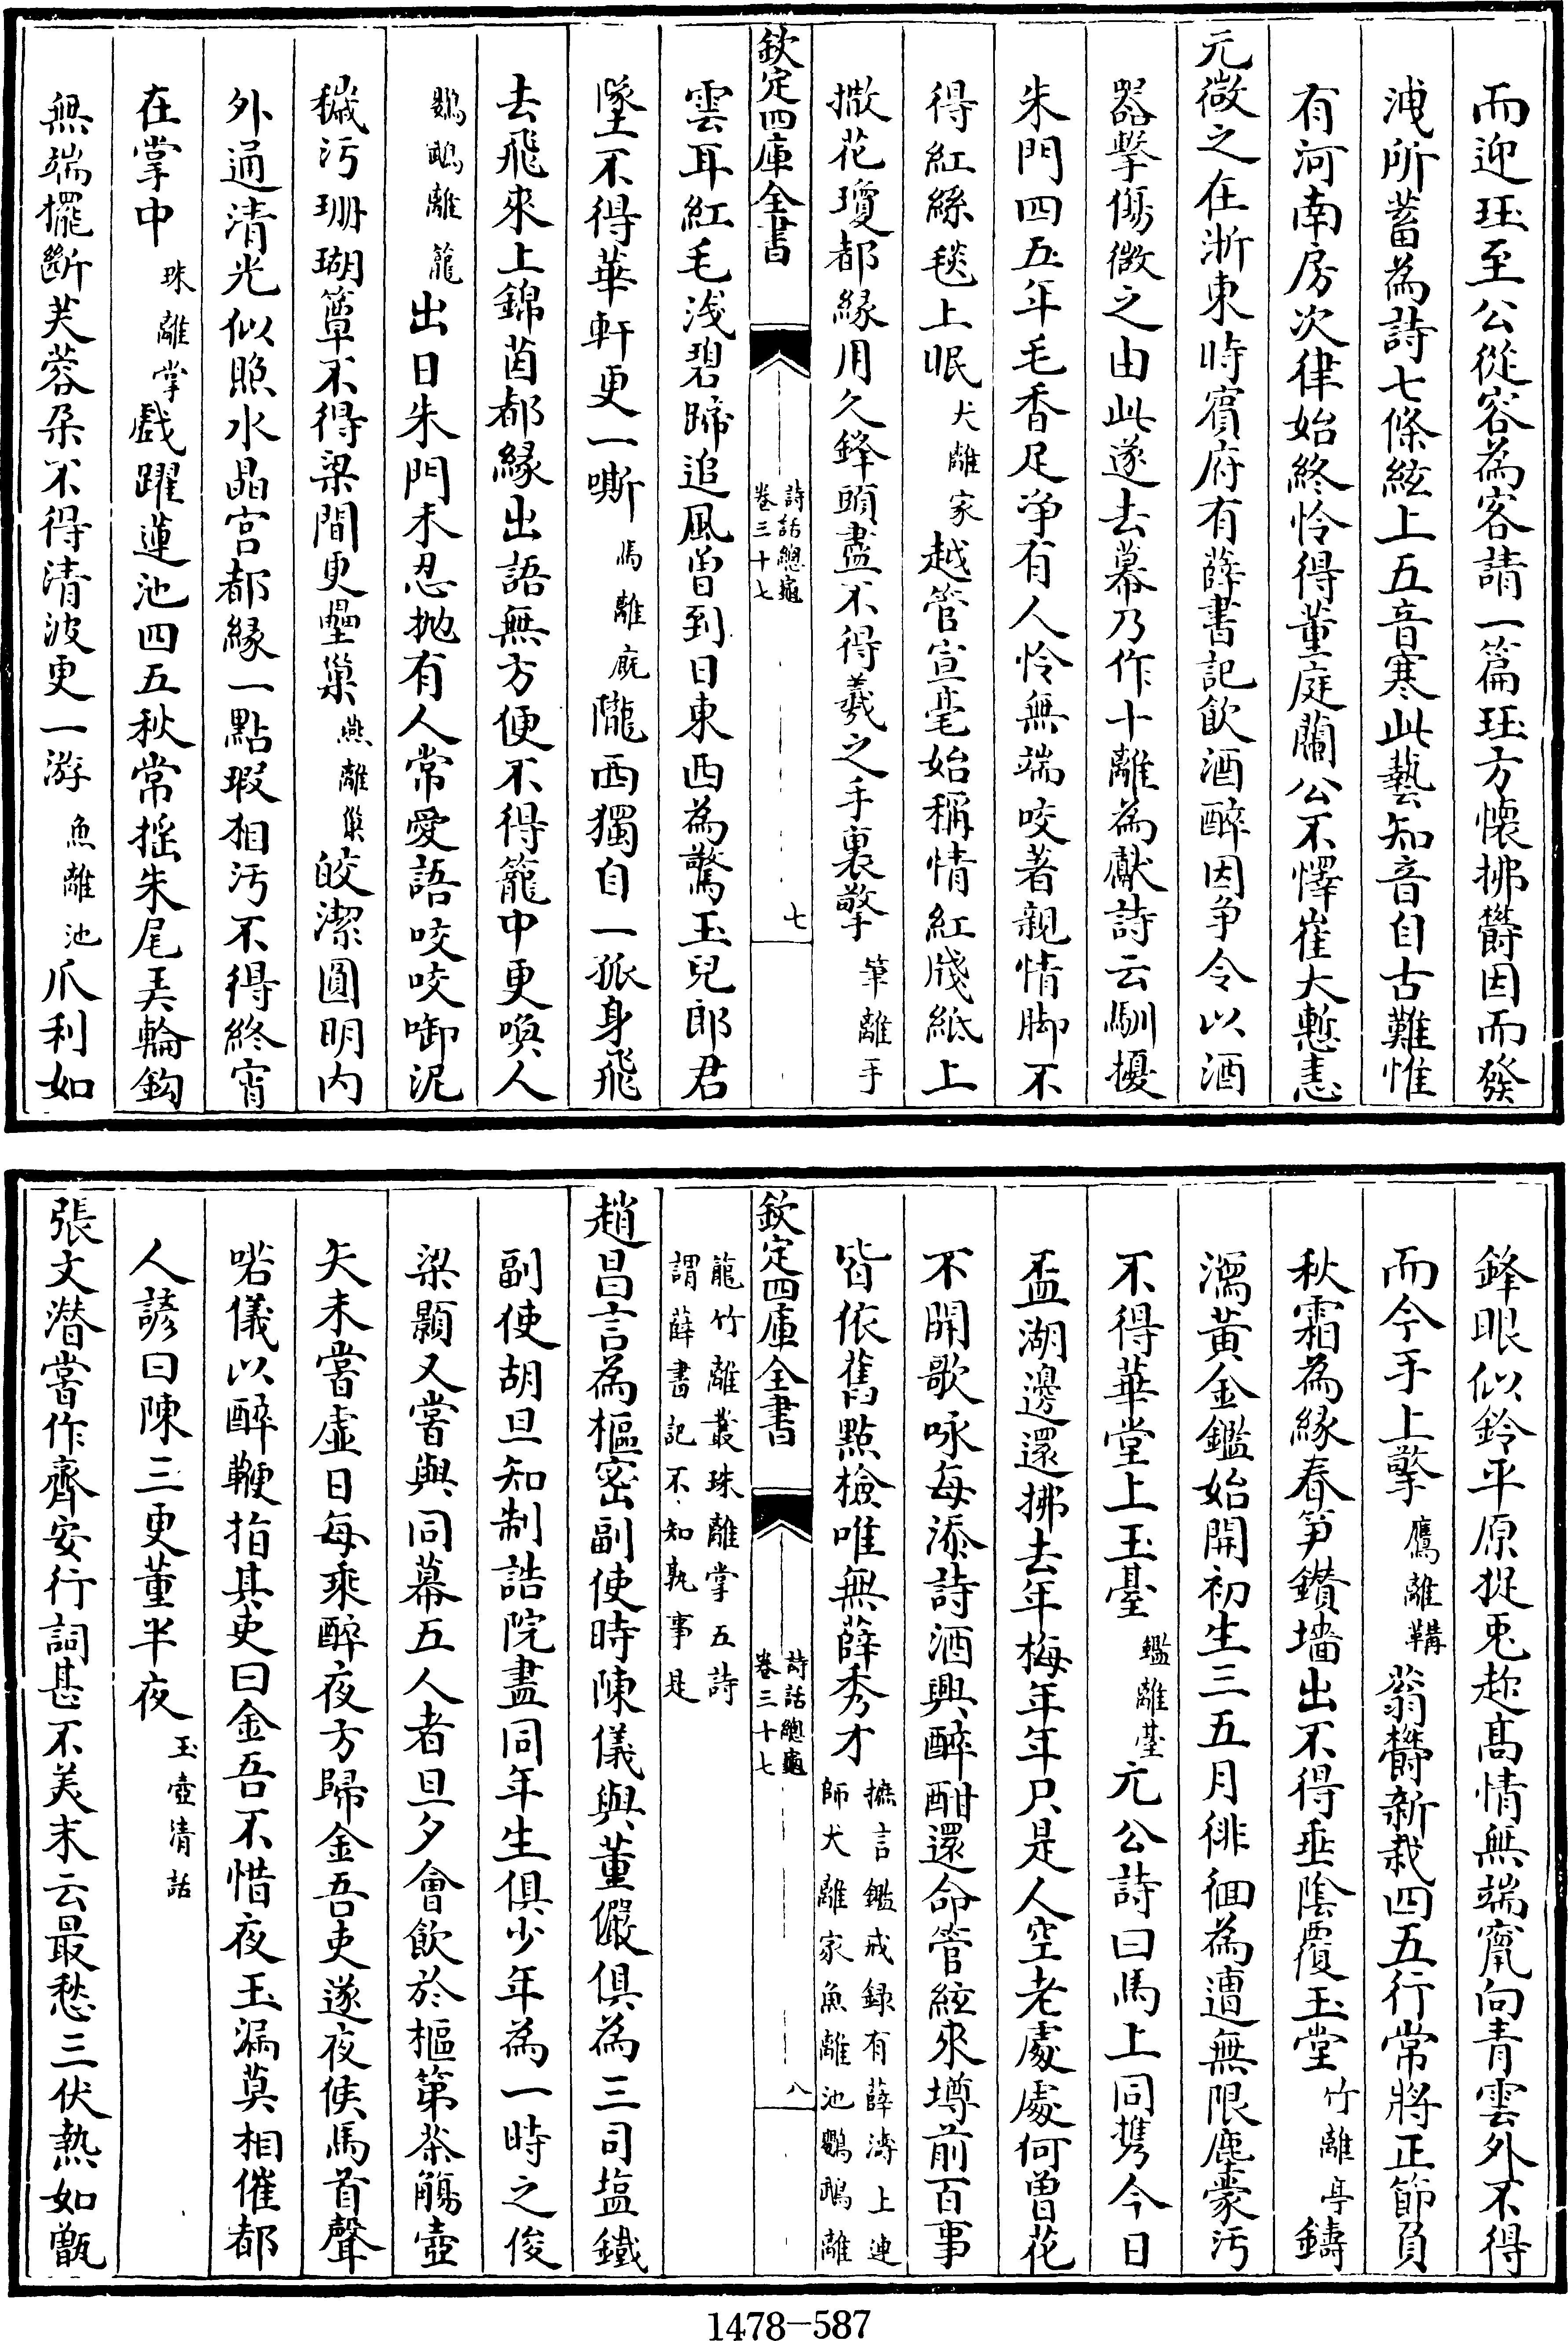 而迎珏至公從容為客請一篇珏方懷拂欝因而發
洩所蓄為詩七條絃上五音寒此藝知音自古難惟
有河南房次律始終怜得董庭蘭公不懌崔大慙恚
元微之在浙東時賔府有薛書記飲酒醉因争令以酒
器擊傷微之由此遂去幕乃作十離為獻詩云馴擾
朱門四五年毛香足净有人怜無端咬著親情脚不
得紅絲毯上眠犬離家越管宣毫始稱情紅牋紙上
撒花瓊都緣用久鋒頭盡不得羲之手裏擎筆離手
欽定四庫全書
詩話總龜
卷三十七
七
雲耳紅毛浅碧蹄追風曽到日東西為驚玉兒郎君
墜不得華軒更一嘶馬離廐隴西獨自一孤身飛
去飛來上錦茵都緣出語無方便不得籠中更喚人
鸚鵡離籠出日朱門未忍抛有人常愛語咬咬啣泥
穢污珊瑚簟不得梁間更壘巢燕離巢皎潔圓明内
外通清光似照水晶宮都緣一點瑕相污不得終宵
在掌中珠離掌戲躍蓮池四五秋常揺朱尾弄輪鈎
無端擺斷芙蓉朵不得清波更一游魚離池爪利如
鋒眼似鈴平原捉兎趂髙情無端竄向青雲外不得
而今手上擎鷹離鞲蓊欝新栽四五行常將正節負
秋霜為緣春笋鑚墻出不得垂陰覆玉堂竹離亭鑄
瀉黄金鑑始開初生三五月徘徊為遭無限塵蒙污
不得華堂上玉臺鑑離臺元公詩曰馬上同携今日
盃湖邊還拂去年梅年年只是人空老處處何曽花
不開歌咏每添詩酒興醉酣還命管絃來塼前百事
皆依舊點檢唯無薛秀才摭言鑑戒録有薛濤上連
師犬離家魚離池鸚鵡離
欽定四庫全書
詩話總龜
卷三十七
八
籠竹離叢珠離掌五詩
謂薛書記不知孰事是
趙昌言為樞密副使時陳儀與董儼俱為三司塩鐵
副使胡旦知制誥院盡同年生俱少年為一時之俊
梁顥又嘗與同幕五人者旦夕會飲於樞第棊觴壺
矢未嘗虚日每乘醉夜方歸金吾吏遂夜俟馬首聲
喏儀以醉鞭指其吏曰金吾不惜夜玉漏莫相催都
人諺曰陳三更董半夜玉壺清話
張文潜嘗作齊安行詞甚不美末云最愁三伏熱如甑
1478-587